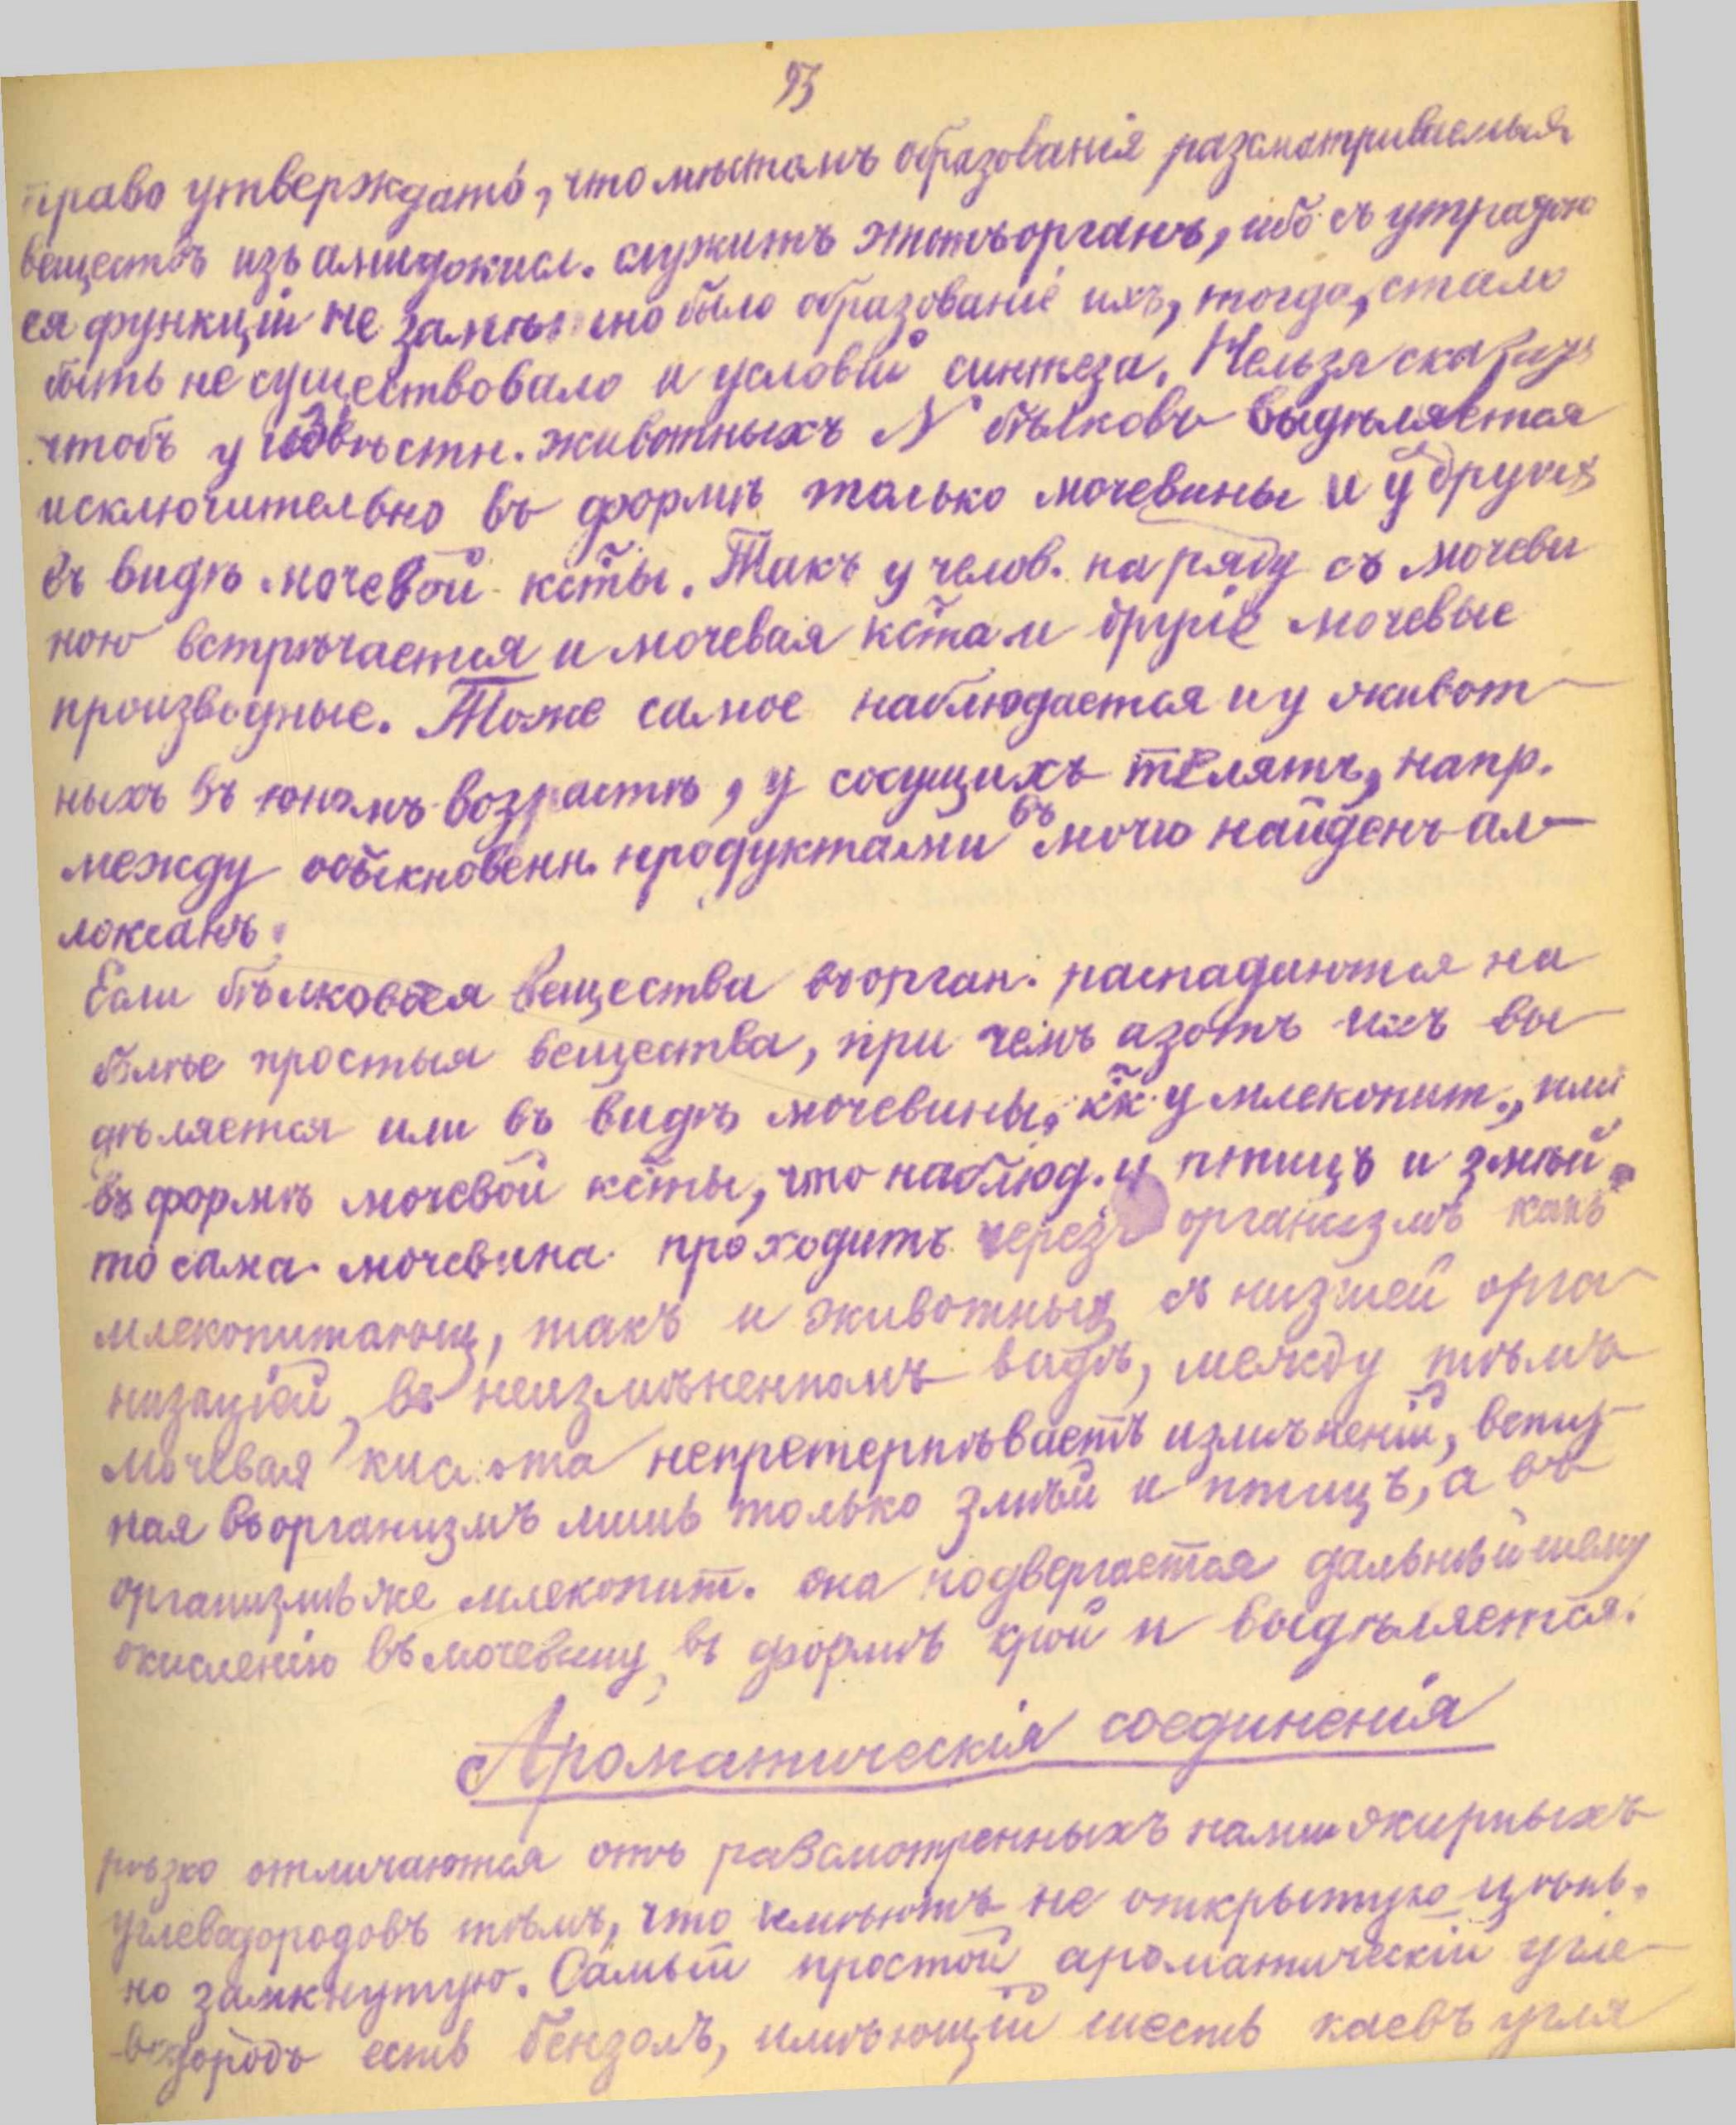 93
право утверждать, что мѣстомъ образованія разсматриваемыя
веществъ изъ амидокисл. служитъ этотъ органъ, ибо съ утратою
ея функціи не замѣчено было образованіе ихъ, тогда, стало
быть не существовало и условій синтеза. Нельзя сказать
чтобъ у извѣстн. животныхъ N бѣлковъ выдѣляется
исключительно въ формѣ только мочевины и у других
въ видѣ мочевой к̃сты. Такъ у челов. на ряду съ мочеви
ною встрѣчается и мочевая к̃ста и другіе мочевые
производные. Тоже самое наблюдается и у живот-
ныхъ въ юномъ возрастѣ, у сосущихъ телятъ, напр.
между обыкновенн. продуктами въ мочѣ найденъ ал-
локсанъ.
Если бѣлковыя вещества въ орган. распадаются на
болѣе простыя вещества, при чемъ азотъ ихъ вы-
дѣляется или въ видѣ мочевины, к̃к у млекопит., или
въ формѣ мочевой к̃сты, что наблюд. у птицъ и змѣй,
то сама мочевина проходитъ черезъ организмъ какъ
млекопитающ, такъ и животных съ низшей орга-
низаціей, въ неизмѣненномъ видѣ, между тѣмъ
мочевая кислота непретерпѣваетъ измѣненій, вступ-
ная въ организмъ лишь только змѣй и птицъ, а въ
организмѣ же млекопит. она подвергается дальнѣйшему
окисленію въ мочевину, въ формѣ к̃рой и выдѣляется.
Ароматическія соединенія
рѣзко отличаются отъ разсмотренныхъ нами жирныхъ
углеводородовъ тѣмъ, что имѣютъ не открытую цѣпь,
но замкнутую. Самый простой ароматическій угле-
водородъ есть бензолъ, имѣющій шесть паевъ угля